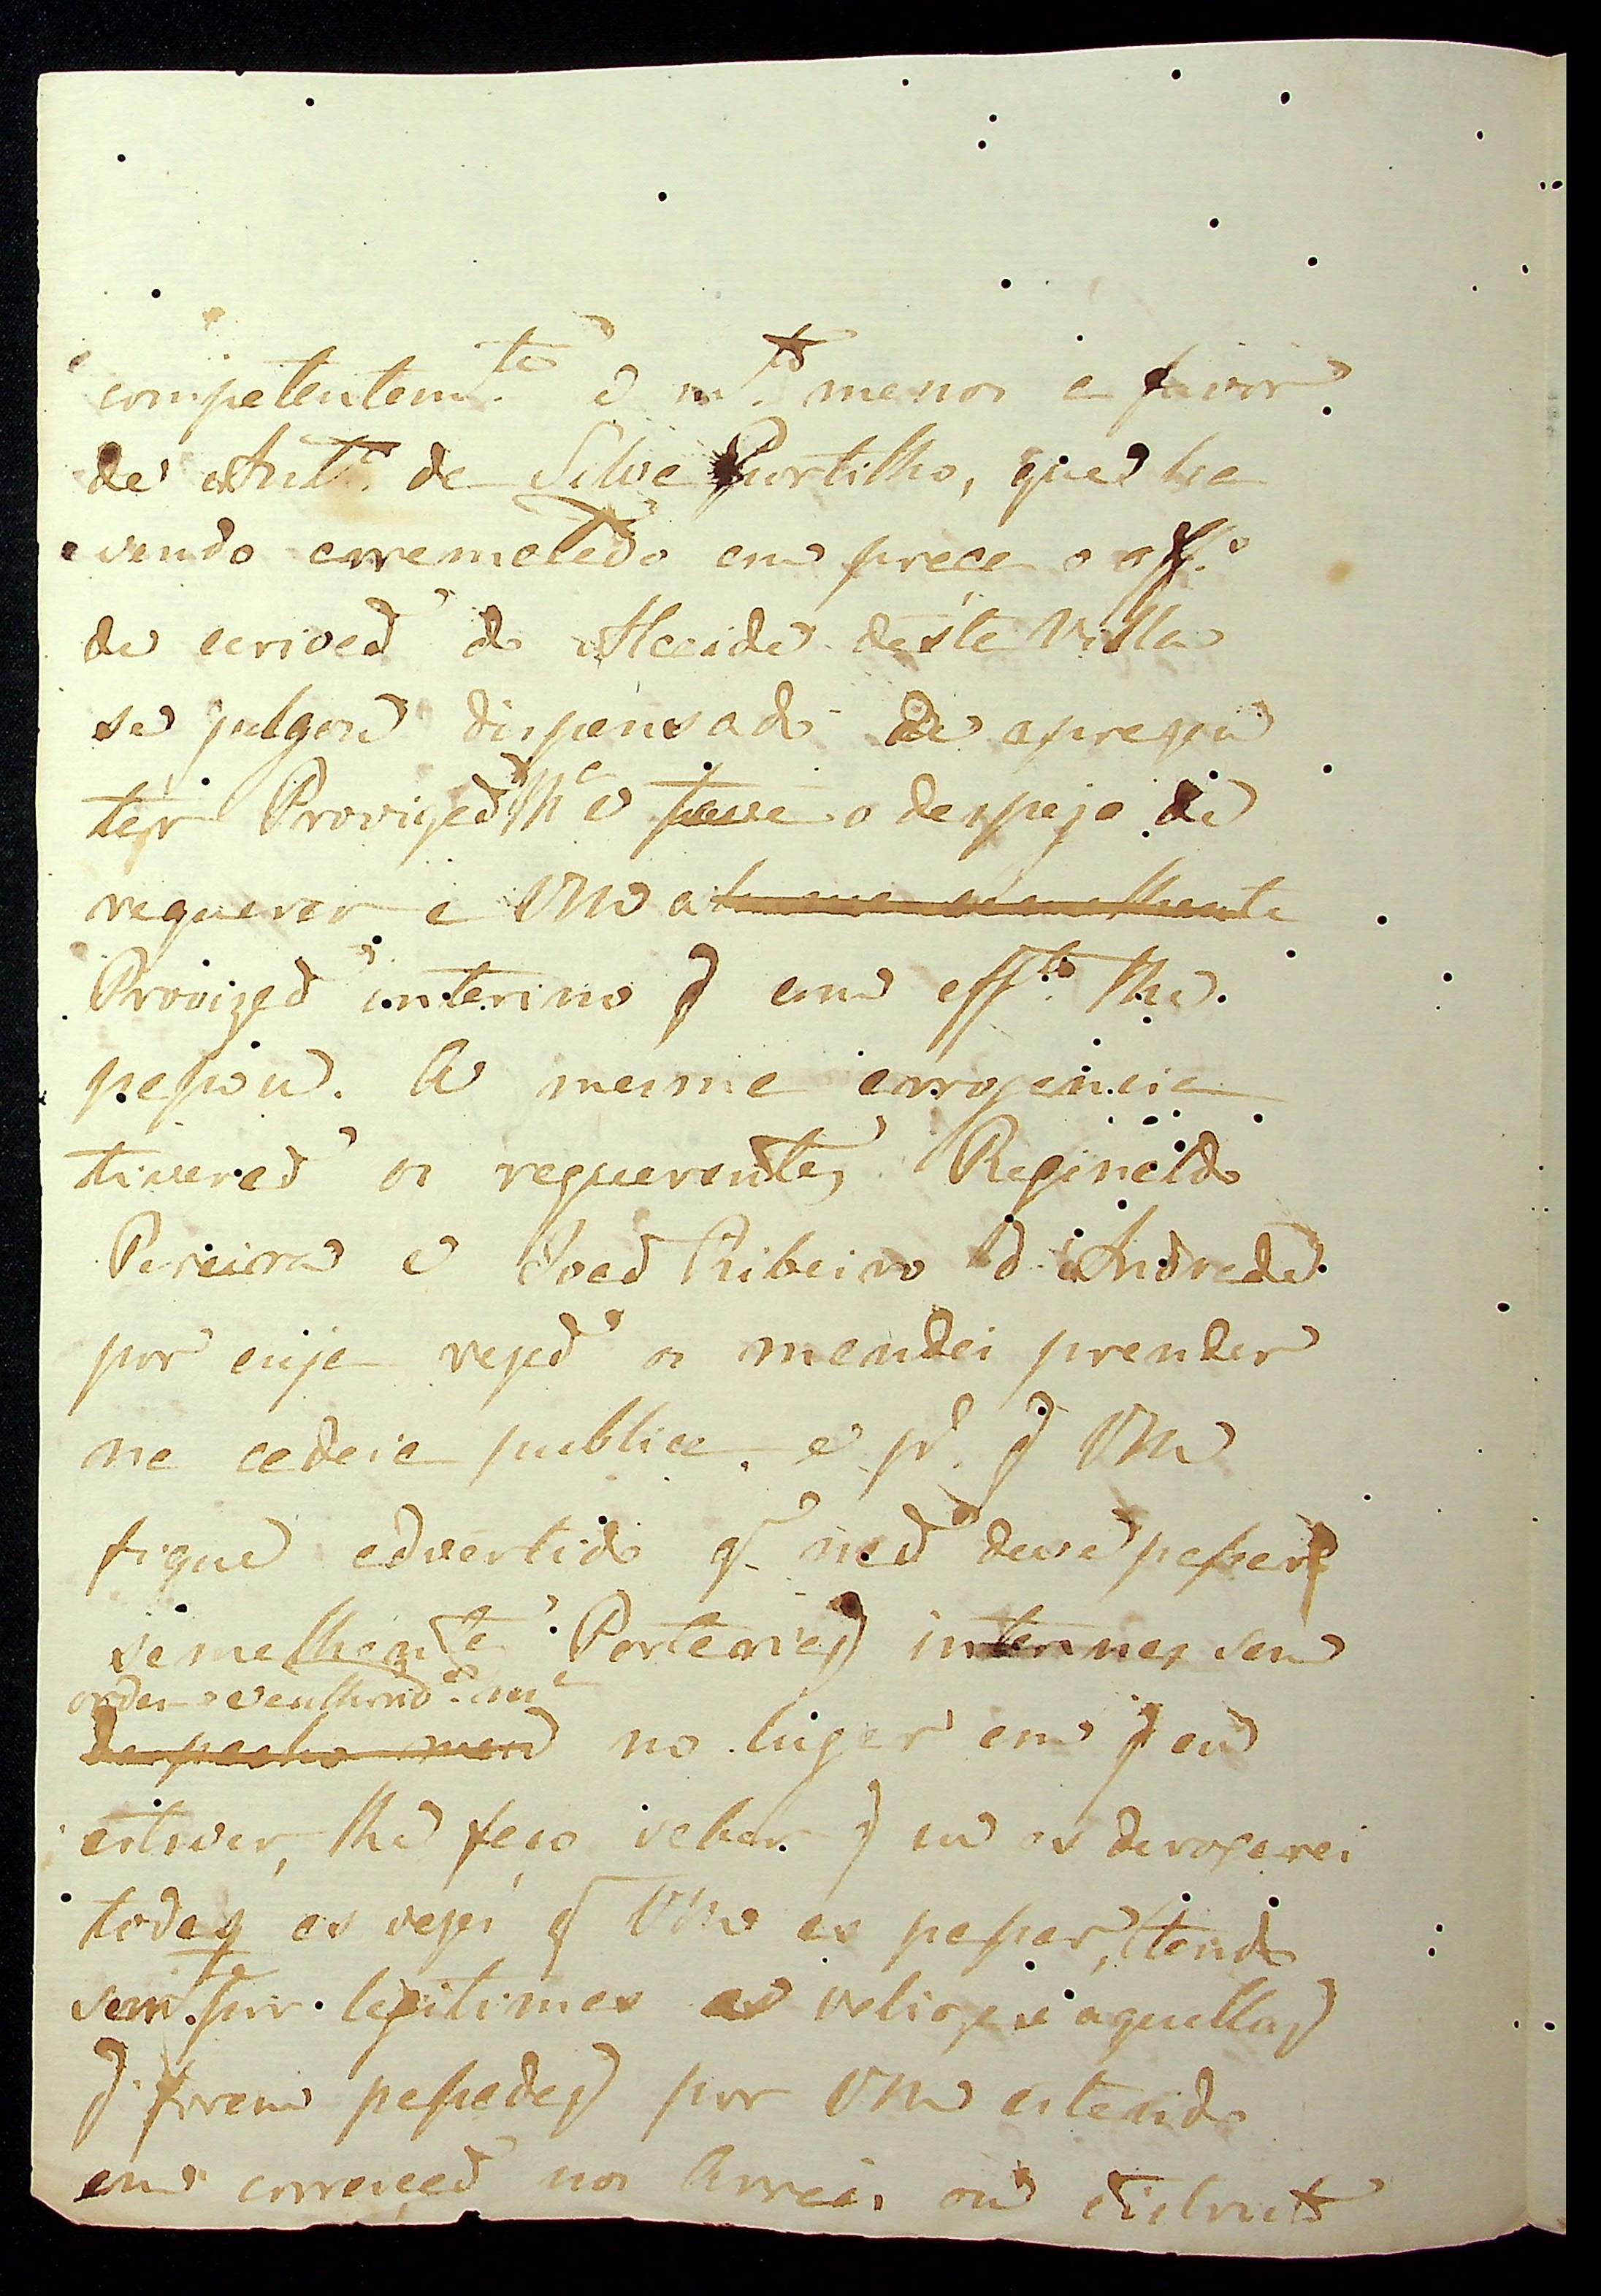 competentem.te e m.to menos a favor
de Ant.o da Silva Portilho, que ha
vendo arrematado em praça o off.o
de escrivaõ do Alcaide desta Villa
se julgou dispensado de aprezen
tar Provizaõ m.a e teve o despejo de
requerer a VM a
Provizaõ interina q em eff.to lhe
passou. A mesma arrogancia
tiveraõ os requerentes Reginaldo
Pereira e Joaõ Ribeiro d Andrade
por cuja rezaõ os mandei prender
na cadeia publica, e p.a q VM
fique advertido q naõ deve passar
semelhante Portarias internas sem
ordem
despacho meu no lugar em q eu
estiver, lhe faço saber q eu as derogarei
todas as vezes q VM as passar, tendo
som.te por legitimas as aquellas
q forem passadas por VM estando
em correiçaõ nos Arraes ou districto